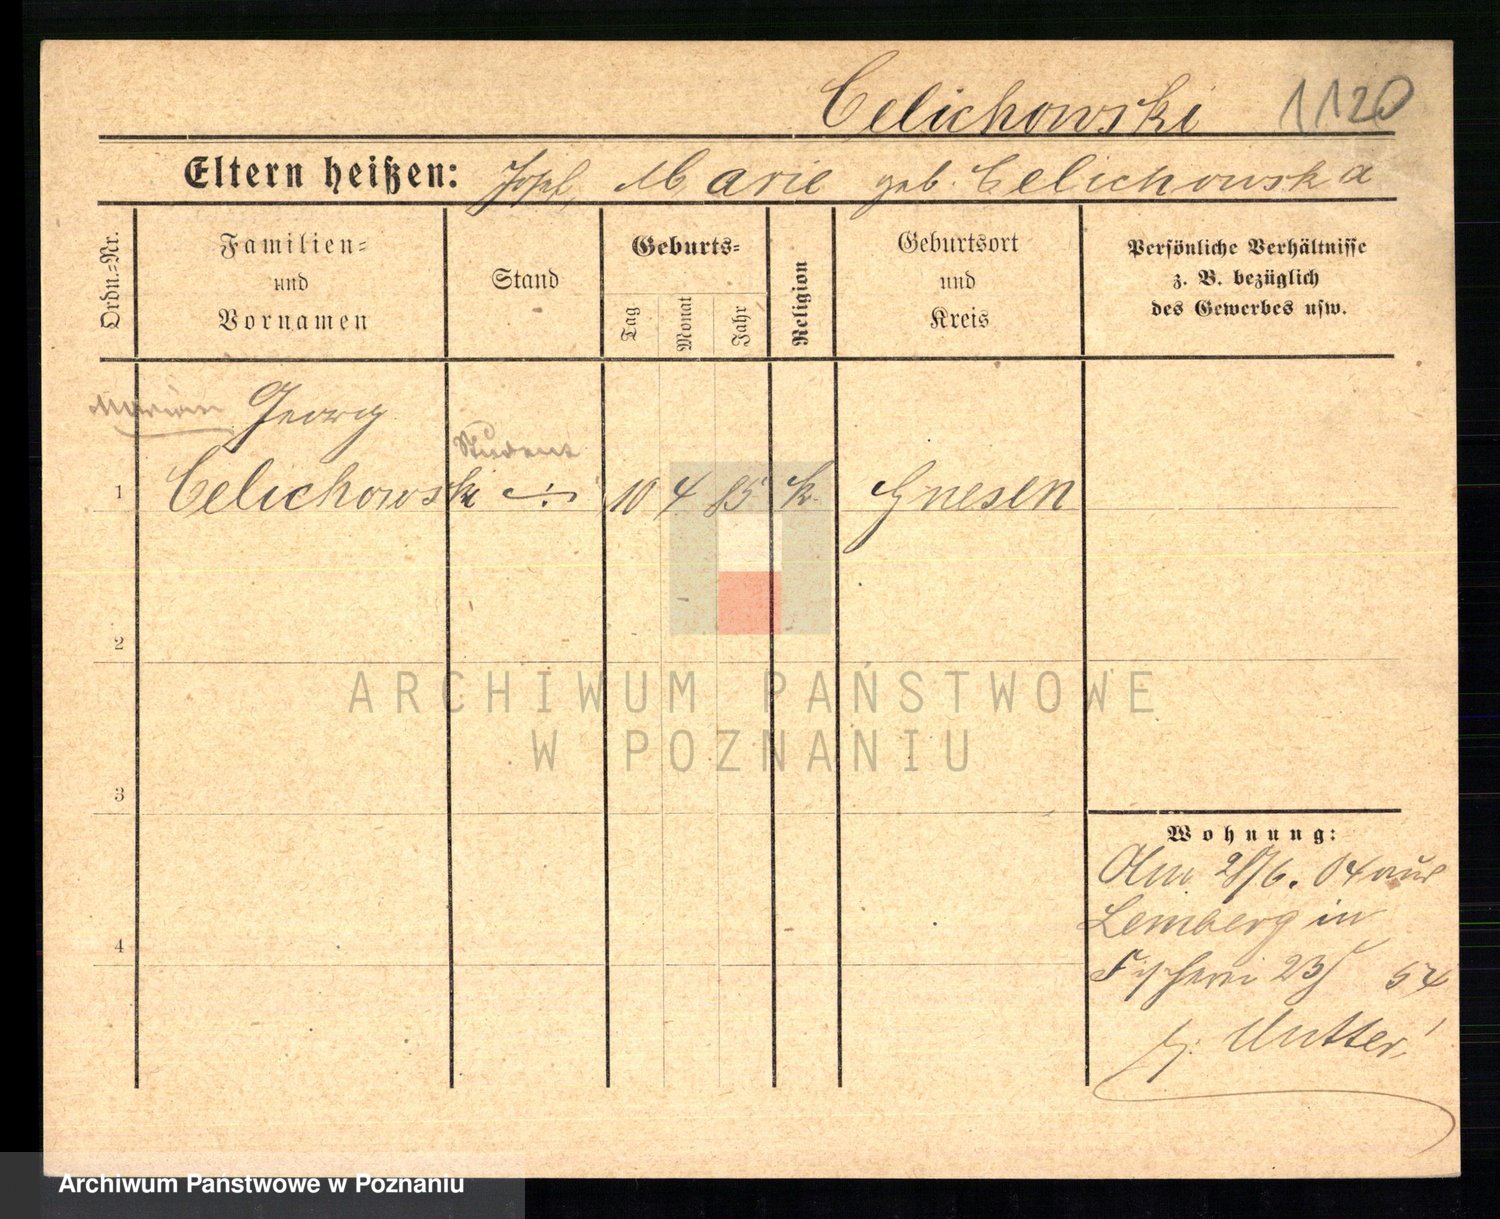 Celichowski 1120
Eltern heißen: Josef, Marie geb. Celichowska
Ordn.=Nr.
Familien=
und
Vornamen
Stand
Geburts=
Tag
Monat
Jahr
Religion
Geburtsort
und
Kreis
Persönliche Verhältnisse
z. B. bezüglich
des Gewerbes usw.
Georg
Student
1 Celichowski 10 4 85 k. Gnesen
2
ARCHIWUM PAŃSTWOWE
W POZNANIU
3
Wohnung:
28/6. 04 aus
Lemberg in
4
Fischerei 23
b. Mutter
Archiwum Państwowe w Poznaniu